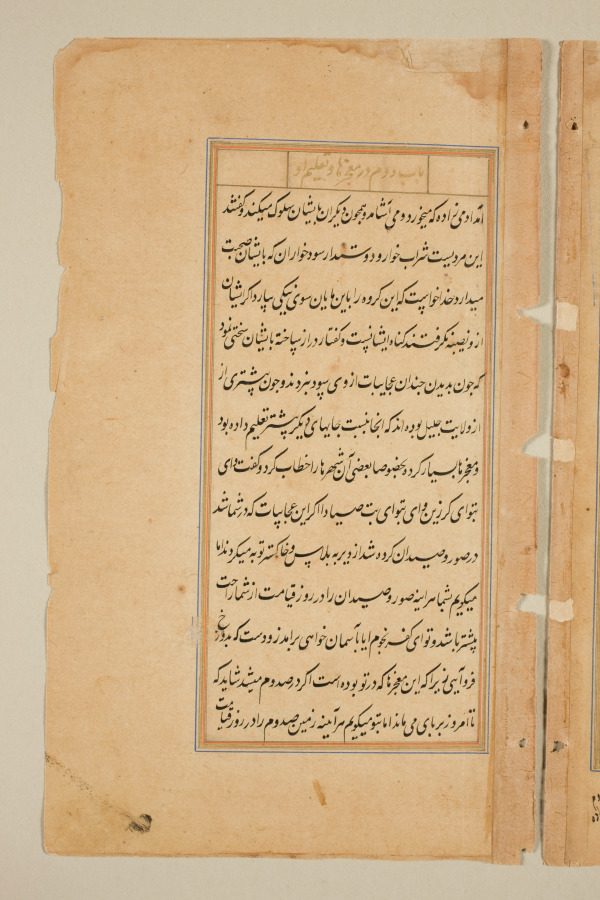 باب دوم در معجزها و تعلیم او
آمد آدمی زاده که میخورد و می آشامد و همچون دیگران بایشان سلوک میکند و گفتند
این مردیست شراب خوار و دوستدار سود خواران که بایشان صحبت
میدارد خدا خواست که این گروه را باین هایان سوی نیکی بیارد اگر ایشان
ازو نصیبه نگرفتند گناه ایشانست و گفتار دراز ساخته بایشان سختی نمود
که چون بدیدن چندان عجایبات از وی سود نبردند و چون بیشتری از
از ولایت جلیل بوده اند که آنجا نسبت جایهای دیگر بیشتر تعلیم داده بود
و معجزها بسیار کرده بخصوصا بعضی آن شهرها را خطاب کرد و گفت وای
بتو ای کرزین وای بتو ای بت صیدا اگر این عجایبات که در شما شد
در صور و صیدان کرده شد از دیر به پلاس و خاکسته توبه میکردند اما
میگویم بشما هر آینه صور و صیدان را در روز قیامت از شما راحت
بیشتر باشد و تو ای کفرنحوم آیا بآسمان خواهی برآمد زودست که بدوزخ
فرو آیی زیرا که این معجزها که در تو بوده است اگر در صدوم میشد شاید که
تا امروز بر پای می ماند اما بتو میگویم هر آیینه زمین صدوم را در روز قیامت